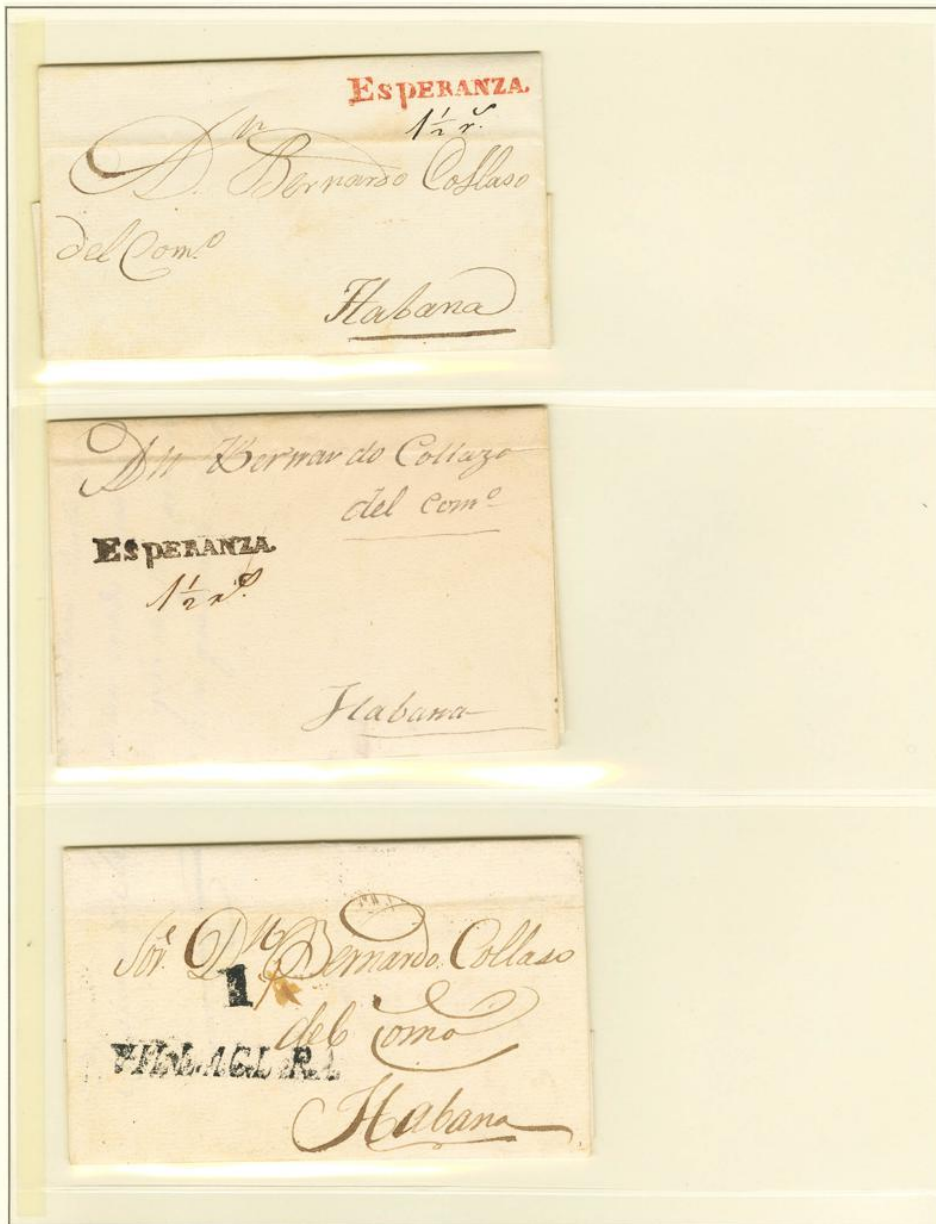 ESPERANZA.
1½ rs.
A Dn Bernardo Collaso
del Como
Habana
Dn Bernardo Collazo
del como
ESPERANZA.
1½ rs.
Habana
Sor. Dn Bernardo Collaso
1
del Como
VILLACLARA
Habana